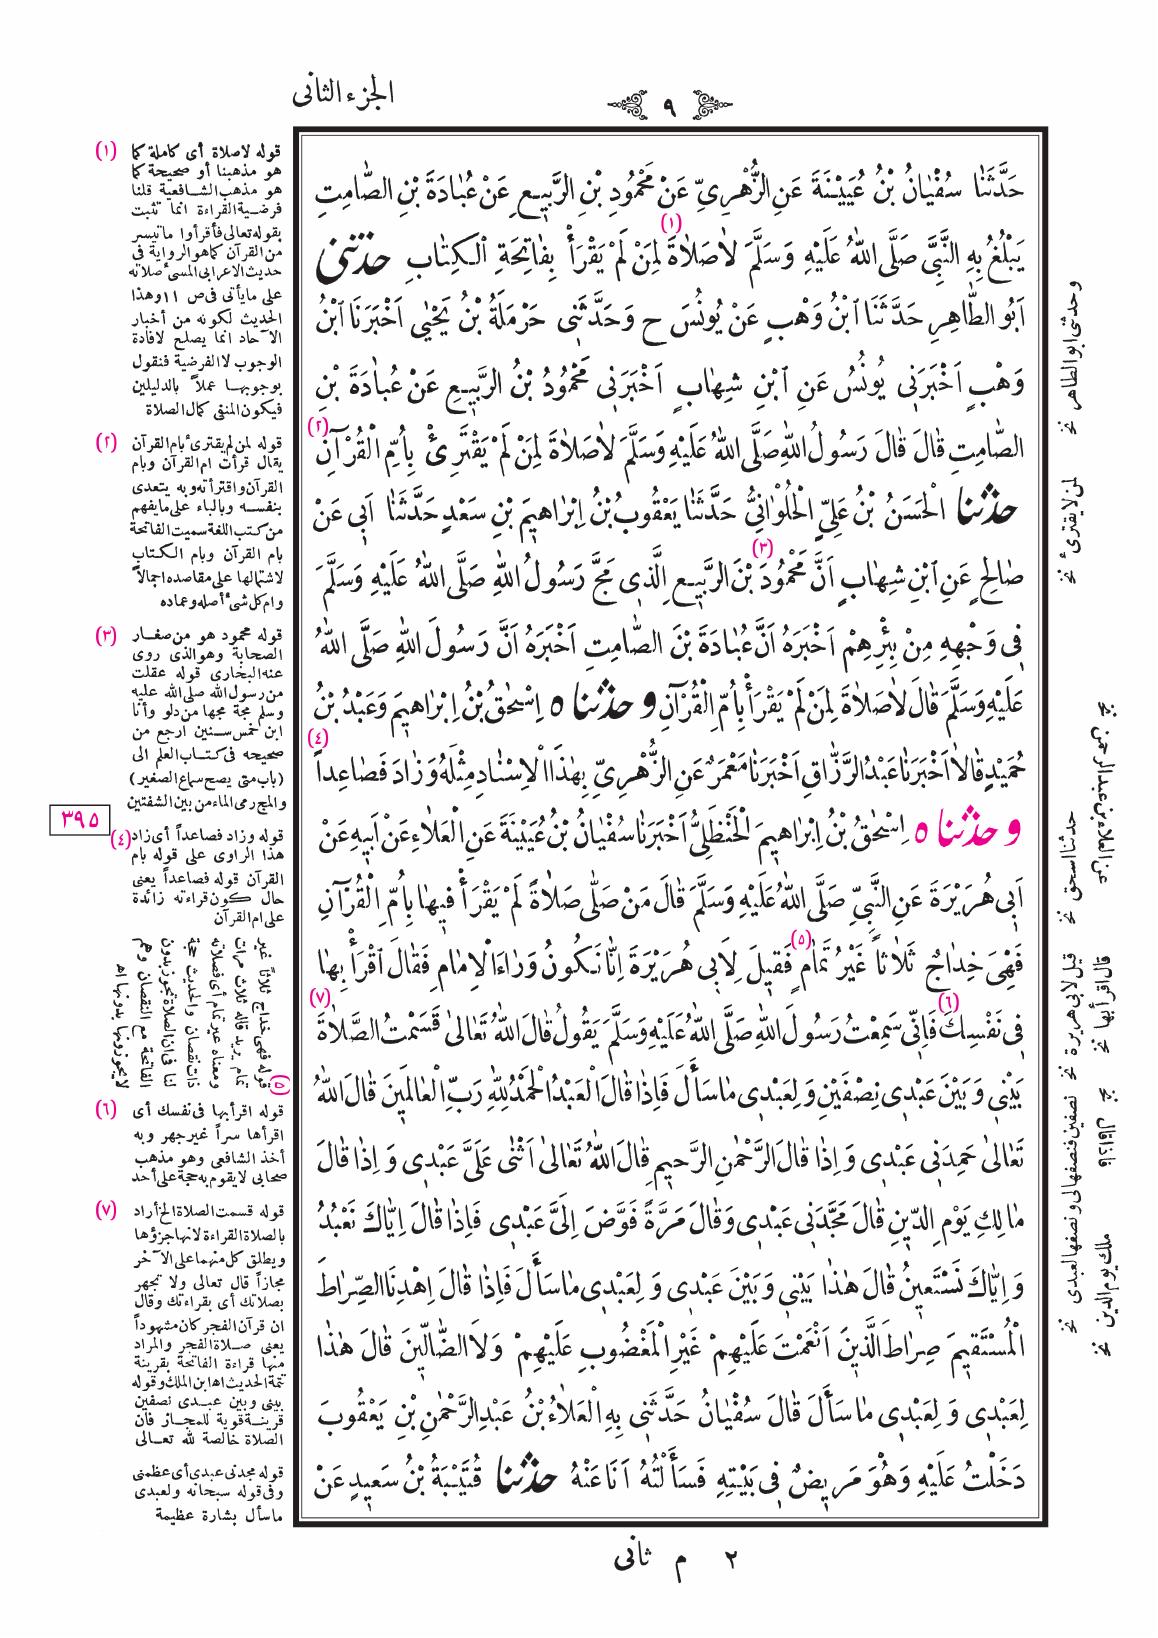 ٩
الجزء الثانى
حَدَّثَنَا سُفْيَانُ بْنُ عُيَيْنَةَ عَنِ الزُّهْرِىِّ عَنْ مَحْمُودِ بْنِ الرَّبِيعِ عَنْ عُبَادَةَ بْنِ الصَّامِتِ
يَبْلُغُ بِهِ النَّبِىَّ صَلَّى اللهُ عَلَيْهِ وَسَلَّمَ لَاصَلَاةَ (١) لِمَنْ لَمْ يَقْرَأْ بِفَاتِحَةِ الْكِتَابِ حَدَّثَنِى
اَبُو الطَّاهِرِ حَدَّثَنَا ابْنُ وَهْبٍ عَنْ يُونُسَ ح وَحَدَّثَنِى حَرْمَلَةُ بْنُ يَحْيٰى اَخْبَرَنَا ابْنُ
وَهْبٍ اَخْبَرَنِى يُونُسُ عَنِ ابْنِ شِهَابٍ اَخْبَرَنِى مَحْمُودُ بْنُ الرَّبِيعِ عَنْ عُبَادَةَ بْنِ
الصَّامِتِ قَالَ قَالَ رَسُولُ اللهِ صَلَّى اللهُ عَلَيْهِ وَسَلَّمَ لَاصَلَاةَ لِمَنْ لَمْ يَقْتَرِئْ بِاُمِّ الْقُرْآنِ (٢)
حَدَّثَنَا الْحَسَنُ بْنُ عَلِىٍّ الْحُلْوَانِىُّ حَدَّثَنَا يَعْقُوبُ بْنُ اِبْرَاهِيمَ بْنِ سَعْدٍ حَدَّثَنَا اَبِى عَنْ
صَالِحٍ عَنِ ابْنِ شِهَابٍ اَنَّ مَحْمُودَ (٣) بْنَ الرَّبِيعِ الَّذِى مَجَّ رَسُولُ اللهِ صَلَّى اللهُ عَلَيْهِ وَسَلَّمَ
فِى وَجْهِهِ مِنْ بِئْرِهِمْ اَخْبَرَهُ اَنَّ عُبَادَةَ بْنَ الصَّامِتِ اَخْبَرَهُ اَنَّ رَسُولَ اللهِ صَلَّى اللهُ
عَلَيْهِ وَسَلَّمَ قَالَ لَاصَلَاةَ لِمَنْ لَمْ يَقْرَأْ بِاُمِّ الْقُرْآنِ وَحَدَّثَنَاهُ اِسْحٰقُ بْنُ اِبْرَاهِيمَ وَعَبْدُ بْنُ
حُمَيْدٍ قَالَا اَخْبَرَنَا عَبْدُ الرَّزَّاقِ اَخْبَرَنَا مَعْمَرٌ عَنِ الزُّهْرِىِّ بِهٰذَا الْاِسْنَادِ مِثْلَهُ وَزَادَ فَصَاعِداً (٤)
وَحَدَّثَنَاهُ اِسْحٰقُ بْنُ اِبْرَاهِيمَ الْحَنْظَلِىُّ اَخْبَرَنَا سُفْيَانُ بْنُ عُيَيْنَةَ عَنِ الْعَلَاءِ عَنْ اَبِيهِ عَنْ
اَبِى هُرَيْرَةَ عَنِ النَّبِىِّ صَلَّى اللهُ عَلَيْهِ وَسَلَّمَ قَالَ مَنْ صَلَّى صَلَاةً لَمْ يَقْرَأْ فِيهَا بِاُمِّ الْقُرْآنِ
فَهِىَ خِدَاجٌ ثَلَاثاً غَيْرُ تَمَامٍ (٥) فَقِيلَ لِاَبِى هُرَيْرَةَ اِنَّا نَكُونُ وَرَاءَ الْاِمَامِ فَقَالَ اقْرَأْ بِهَا
فِى نَفْسِكَ (٦) فَاِنِّى سَمِعْتُ رَسُولَ اللهِ صَلَّى اللهُ عَلَيْهِ وَسَلَّمَ يَقُولُ قَالَ اللهُ تَعَالٰى قَسَمْتُ الصَّلَاةَ (٧)
بَيْنِى وَبَيْنَ عَبْدِى نِصْفَيْنِ وَلِعَبْدِى مَاسَأَلَ فَاِذَا قَالَ الْعَبْدُ الْحَمْدُ لِلّٰهِ رَبِّ الْعَالَمِينَ قَالَ اللهُ
تَعَالٰى حَمِدَنِى عَبْدِى وَاِذَا قَالَ الرَّحْمٰنِ الرَّحِيمِ قَالَ اللهُ تَعَالٰى اَثْنٰى عَلَىَّ عَبْدِى وَاِذَا قَالَ
مَالِكِ يَوْمِ الدِّينِ قَالَ مَجَّدَنِى عَبْدِى وَقَالَ مَرَّةً فَوَّضَ اِلَىَّ عَبْدِى فَاِذَا قَالَ اِيَّاكَ نَعْبُدُ
وَاِيَّاكَ نَسْتَعِينُ قَالَ هٰذَا بَيْنِى وَبَيْنَ عَبْدِى وَلِعَبْدِى مَاسَأَلَ فَاِذَا قَالَ اِهْدِنَا الصِّرَاطَ
الْمُسْتَقِيمَ صِرَاطَ الَّذِينَ اَنْعَمْتَ عَلَيْهِمْ غَيْرِ الْمَغْضُوبِ عَلَيْهِمْ وَلَا الضَّالِّينَ قَالَ هٰذَا
لِعَبْدِى وَلِعَبْدِى مَاسَأَلَ قَالَ سُفْيَانُ حَدَّثَنِى بِهِ الْعَلَاءُ بْنُ عَبْدِ الرَّحْمٰنِ بْنِ يَعْقُوبَ
دَخَلْتُ عَلَيْهِ وَهُوَ مَرِيضٌ فِى بَيْتِهِ فَسَأَلْتُهُ اَنَا عَنْهُ حَدَّثَنَا قُتَيْبَةُ بْنُ سَعِيدٍ عَنْ
٢ م ثانى
(١) قوله لاصلاة أى كاملة كما
هو مذهبنا أو صحيحة كما
هو مذهب الشافعية قلنا
فرضية القراءة انما تثبت
بقوله تعالى فأقرأوا ماتيسر
من القرآن كماهو الرواية فى
حديث الاعرابى المسئ صلاته
على ما يأتى فى ص ١١ وهذا
الحديث لكونه من أخبار
الآحاد انما يصلح لافادة
الوجوب لاالفرضية فنقول
بوجوبها عملاً بالدليلين
فيكون المنفى كمال الصلاة
(٢) قوله لمن لم يقترئ بام القرآن
يقال قرأت ام القرآن وبام
القرآن واقترأته وبه يتعدى
بنفسه وبالباء على مايفهم
من كتب اللغة سميت الفاتحة
بام القرآن وبام الكتاب
لاشتمالها على مقاصده اجمالاً
وام كل شئ أصله وعماده
(٣) قوله محمود هو من صغار
الصحابة وهو الذى روى
عنه البخارى قوله عقلت
من رسول الله صلى الله عليه
وسلم مجة مجها من دلو وأنا
ابن خمس سنين ارجع من
صحيحه فى كتاب العلم الى
(باب متى يصح سماع الصغير)
والمج رمى الماء من بين الشفتين
٣٩٥
(٤) قوله وزاد فصاعداً أى زاد
هذا الراوى على قوله بام
القرآن قوله فصاعداً يعنى
حال كون قراءته زائدة
على ام القرآن
(٥) قوله فهى خداج ثلاثاً غير
تمام يريد قاله ثلاث مرات
ومعناه غير تمام أى فصلاته
ذات نقصان والحديث حجة
لنا فى ان الصلاة تجوز بدون
الفاتحة مع النقصان وهم
لايجوزونها بدونها اه
(٦) قوله اقرأ بها فى نفسك أى
اقرأها سراً غير جهر وبه
أخذ الشافعى وهو مذهب
صحابى لايقوم به حجة على أحد
(٧) قوله قسمت الصلاة الخ أراد
بالصلاة القراءة لانها جزؤها
ويطلق كل منهما على الآخر
مجازاً قال تعالى ولا تجهر
بصلاتك أى بقراءتك وقال
ان قرآن الفجر كان مشهوداً
يعنى صلاة الفجر والمراد
منها قراءة الفاتحة بقرينة
تتمة الحديث اه ابن الملك وقوله
بينى وبين عبدى نصفين
قرينة قوية للمجاز فان
الصلاة خالصة لله تعالى
قوله مجدنى عبدى أى عظمنى
وفى قوله سبحانه ولعبدى
ماسأل بشارة عظيمة
وحدثنى ابو الطاهر نخ
لمن لا يقترئ نخ
عن العلاء بن عبد الرحمن نخ
حدثنا اسحق نخ
قال اقرأ بها نخ
قيل لابى هريرة نخ
فاذا قال نخ
نصفين فنصفها لى ونصفها لعبدى نخ
ملك يوم الدين نخ